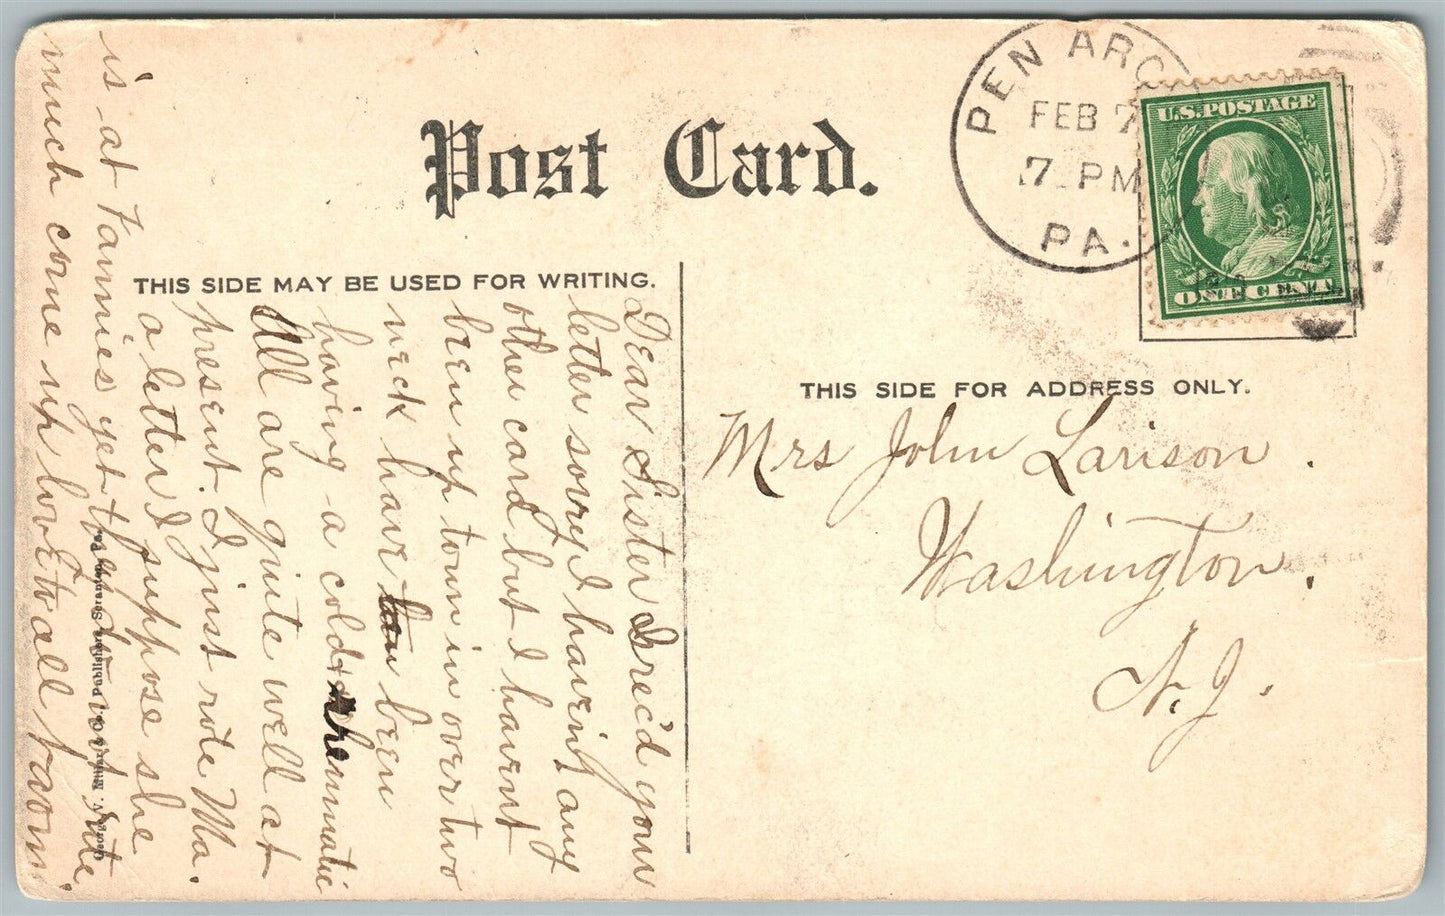 Post Card.
THIS SIDE MAY BE USED FOR WRITING.
THIS SIDE FOR ADDRESS ONLY.
PEN ARG
FEB 7
7 PM
PA.
U.S. POSTAGE
ONE CENT
Mrs John Larison.
Washington.
N.J.
Dear Sister Rec'd your
letter sorry I havent any
other card but I havent
been up town in over two
week have been
having a cold + rheumatic
All are quite well at
present. I just rote Ma.
a letter I suppose she
is at Fannies yet
much come up love to all from